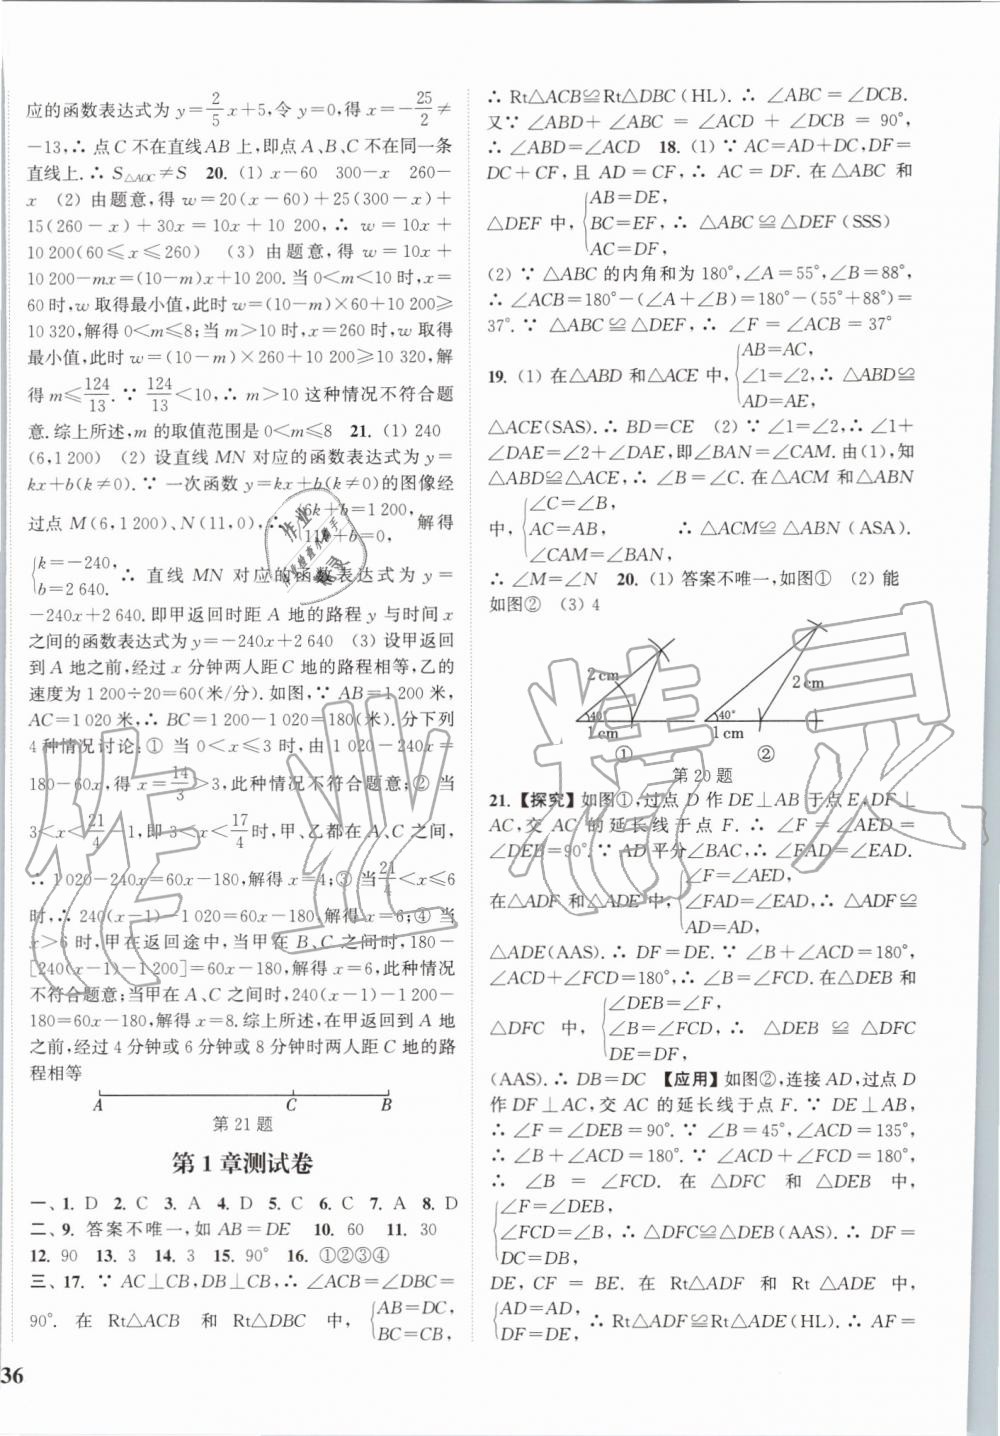 应的函数表达式为 y=2/5x+5,令 y=0,得 x=-25/2≠
-13,∴ 点 C 不在直线AB 上,即点 A、B、C 不在同一条
直线上.∴ S△AOC≠S 20. (1) x-60 300-x 260-
x (2) 由题意,得 w=20(x-60)+25(300-x)+
15(260-x)+30x=10x+10 200,∴ w=10x+
10 200(60≤x≤260) (3) 由题意,得 w=10x+
10 200-mx=(10-m)x+10 200. 当 0<m<10 时,x=
60 时,w 取得最小值,此时 w=(10-m)×60+10 200≥
10 320,解得 0<m≤8;当 m>10 时,x=260 时,w 取得
最小值,此时 w=(10-m)×260+10 200≥10 320,解
得 m≤124/13.∵ 124/13<10,∴ m>10 这种情况不符合题
意.综上所述,m 的取值范围是 0<m≤8 21. (1) 240
(6,1 200) (2) 设直线 MN 对应的函数表达式为 y=
kx+b(k≠0).∵ 一次函数 y=kx+b(k≠0)的图像经
过点 M(6,1 200)、N(11,0),∴ {6k+b=1 200, 11k+b=0, 解得
{k=-240, b=2 640. ∴ 直线 MN 对应的函数表达式为 y=
-240x+2 640. 即甲返回时距 A 地的路程 y 与时间 x
之间的函数表达式为 y=-240x+2 640 (3) 设甲返回
到 A 地之前,经过 x 分钟两人距 C 地的路程相等,乙的
速度为 1 200÷20=60(米/分). 如图,∵ AB=1 200 米,
AC=1 020 米,∴ BC=1 200-1 020=180(米). 分下列
4 种情况讨论:① 当 0<x≤3 时,由 1 020-240x=
180-60x,得 x=14/3>3,此种情况不符合题意;② 当
3<x<21/4-1,即 3<x<17/4时,甲、乙都在 A、C 之间,
∴ 1 020-240x=60x-180,解得 x=4;③ 当21/4<x≤6
时,∴ 240(x-1)-1 020=60x-180,解得 x=6;④ 当
x>6 时,甲在返回途中,当甲在 B、C 之间时,180-
[240(x-1)-1 200]=60x-180,解得 x=6,此种情况
不符合题意;当甲在 A、C 之间时,240(x-1)-1 200-
180=60x-180,解得 x=8.综上所述,在甲返回到 A 地
之前,经过 4 分钟或 6 分钟或 8 分钟时两人距 C 地的路
程相等
A C B
第 21 题
第 1 章测试卷
一、1. D 2. C 3. A 4. D 5. D 6. C 7. A 8. D
二、9. 答案不唯一,如 AB=DE 10. 60 11. 30
12. 90 13. 3 14. 3 15. 90° 16. ①②③④
三、17. ∵ AC⊥CB,DB⊥CB,∴ ∠ACB=∠DBC=
90°. 在 Rt△ACB 和 Rt△DBC 中, {AB=DC, BC=CB,
36
∴ Rt△ACB≌Rt△DBC(HL). ∴ ∠ABC=∠DCB.
又∵ ∠ABD+∠ABC=∠ACD+∠DCB=90°,
∴ ∠ABD=∠ACD 18. (1) ∵ AC=AD+DC,DF=
DC+CF,且 AD=CF,∴ AC=DF. 在△ABC 和
△DEF 中, {AB=DE, BC=EF, AC=DF, ∴ △ABC≌△DEF(SSS)
(2) ∵ △ABC 的内角和为 180°,∠A=55°,∠B=88°,
∴ ∠ACB=180°-(∠A+∠B)=180°-(55°+88°)=
37°. ∵ △ABC≌△DEF,∴ ∠F=∠ACB=37°
19. (1) 在△ABD 和△ACE 中, {AB=AC, ∠1=∠2, AD=AE, ∴ △ABD≌
△ACE(SAS).∴ BD=CE (2) ∵ ∠1=∠2,∴ ∠1+
∠DAE=∠2+∠DAE,即∠BAN=∠CAM. 由(1),知
△ABD≌△ACE,∴ ∠B=∠C. 在△ACM 和△ABN
中, {∠C=∠B, AC=AB, ∠CAM=∠BAN, ∴ △ACM≌△ABN (ASA).
∴ ∠M=∠N 20. (1) 答案不唯一,如图① (2) 能
如图② (3) 4
2 cm 40° 1 cm ①
2 cm 40° 1 cm ②
第 20 题
21. 【探究】如图①,过点 D 作 DE⊥AB 于点 E,DF⊥
AC,交 AC 的延长线于点 F. ∴ ∠F=∠AED=
∠DEB=90°. ∵ AD 平分∠BAC,∴ ∠FAD=∠EAD.
在△ADF 和△ADE 中, {∠F=∠AED, ∠FAD=∠EAD, AD=AD, ∴ △ADF≌
△ADE(AAS). ∴ DF=DE. ∵ ∠B+∠ACD=180°,
∠ACD+∠FCD=180°,∴ ∠B=∠FCD. 在△DEB 和
△DFC 中, {∠DEB=∠F, ∠B=∠FCD, DE=DF, ∴ △DEB≌△DFC
(AAS). ∴ DB=DC 【应用】如图②,连接 AD,过点 D
作 DF⊥AC,交 AC 的延长线于点 F. ∵ DE⊥AB,
∴ ∠F=∠DEB=90°. ∵ ∠B=45°,∠ACD=135°,
∴ ∠B+∠ACD=180°. ∵ ∠ACD+∠FCD=180°,
∴ ∠B=∠FCD. 在△DFC 和△DEB 中,
{∠F=∠DEB, ∠FCD=∠B, DC=DB, ∴ △DFC≌△DEB(AAS). ∴ DF=
DE,CF=BE. 在 Rt△ADF 和 Rt△ADE 中,
{AD=AD, DF=DE, ∴ Rt△ADF≌Rt△ADE(HL).∴ AF=
作业精灵